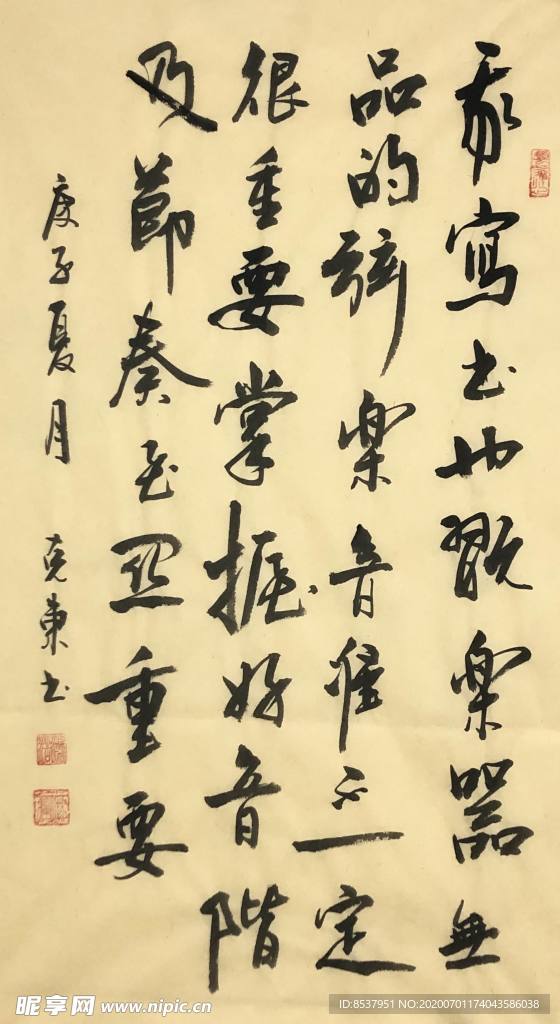 我寫书翫楽器無
品的弦楽音准一定
很重要掌握好音階
及節奏至關重要
庚子夏月 克東书
昵享网 www.nipic.cn
ID:8537951 NO:20200701174043586038